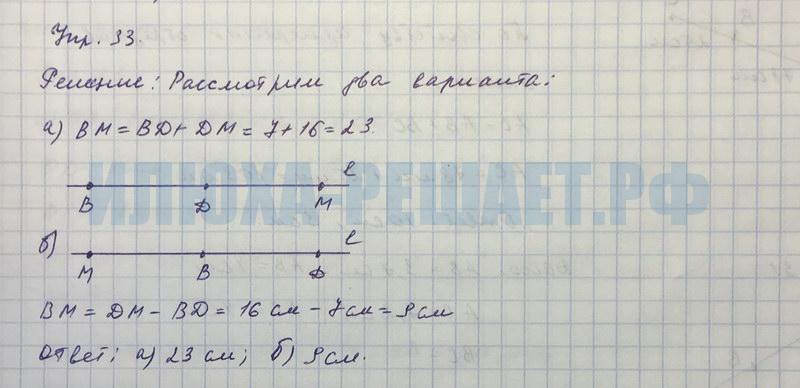 Упр. 33.
Решение: Рассмотрим два варианта:
а) BM = BD + DM = 7 + 16 = 23.
ИЛЮХА-РЕШАЕТ.РФ
B D M ℓ
б)
M B D ℓ
BM = DM - BD = 16 см - 7 см = 9 см
Ответ: а) 23 см; б) 9 см.